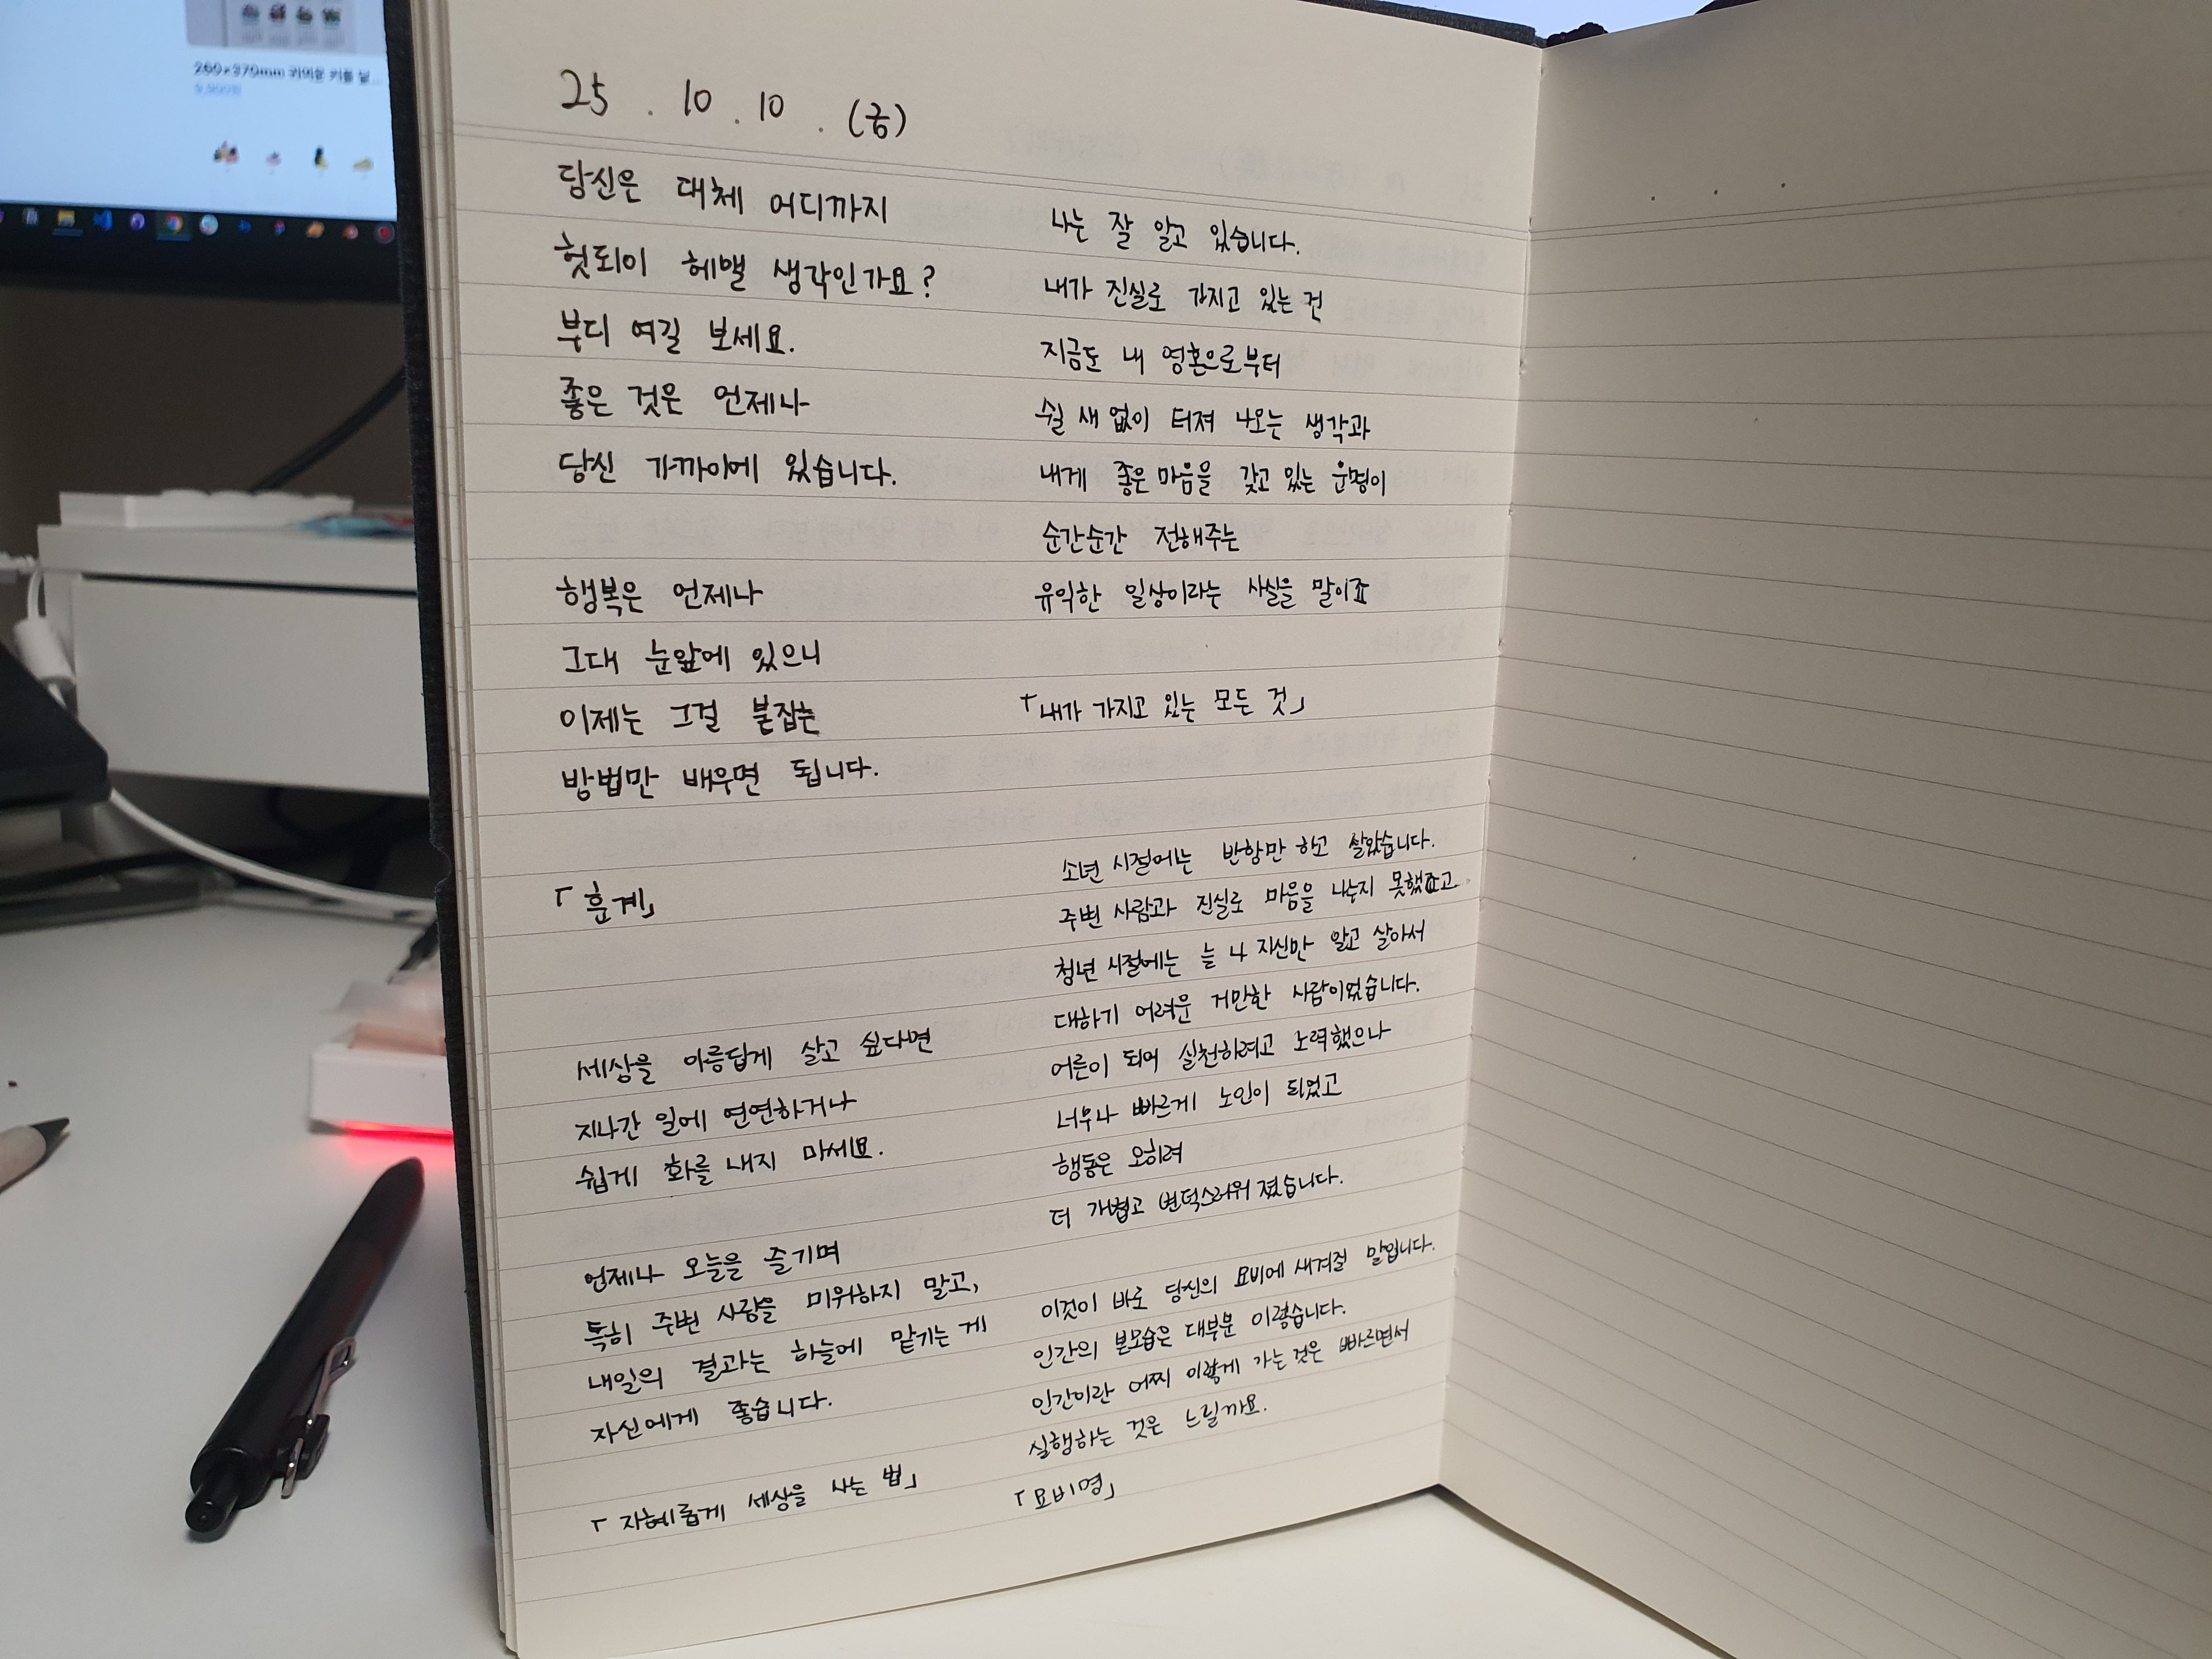 25 . 10 . 10 . (금)
당신은 대체 어디까지
헛되이 헤맬 생각인가요?
부디 여길 보세요.
좋은 것은 언제나
당신 가까이에 있습니다.
행복은 언제나
그대 눈앞에 있으니
이제는 그걸 붙잡는
방법만 배우면 됩니다.
「훈계」
세상을 아름답게 살고 싶다면
지나간 일에 연연하거나
쉽게 화를 내지 마세요.
언제나 오늘을 즐기며
특히 주변 사람을 미워하지 말고,
내일의 결과는 하늘에 맡기는 게
자신에게 좋습니다.
「지혜롭게 세상을 사는 법」
나는 잘 알고 있습니다.
내가 진실로 가지고 있는 건
지금도 내 영혼으로부터
쉴 새 없이 터져 나오는 생각과
내게 좋은 마음을 갖고 있는 운명이
순간순간 전해주는
유익한 일상이라는 사실을 말이죠
「내가 가지고 있는 모든 것」
소년 시절에는 반항만 하고 살았습니다.
주변 사람과 진실로 마음을 나누지 못했고
청년 시절에는 늘 나 자신만 알고 살아서
대하기 어려운 거만한 사람이었습니다.
어른이 되어 실천하려고 노력했으나
너무나 빠르게 노인이 되었고
행동은 오히려
더 가볍고 변덕스러워 졌습니다.
이것이 바로 당신의 묘비에 새겨질 말입니다.
인간의 본모습은 대부분 이렇습니다.
인간이란 어찌 이렇게 가는 것은 빠르면서
실행하는 것은 느릴까요.
「묘비명」
260x370mm 귀여운 키틀